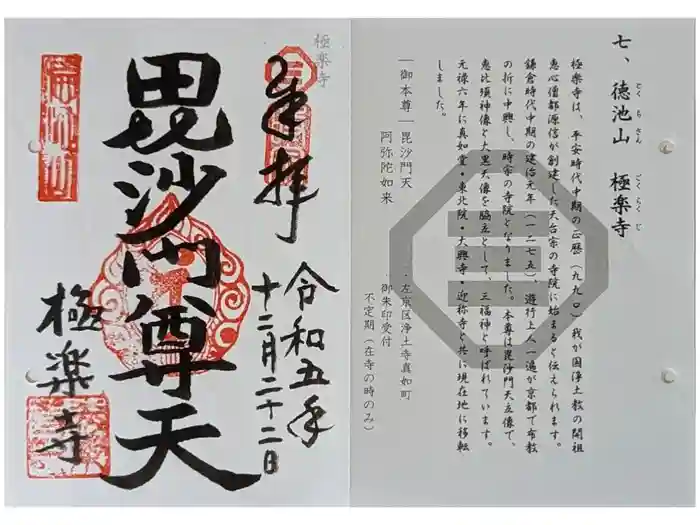 七、徳池山　極楽寺
とくちさん　ごくらくじ
極楽寺は、平安時代中期の正暦（九九〇）我が国浄土教の開祖
恵心僧都源信が創建した天台宗の寺院に始まると伝えられます。
鎌倉時代中期の建治元年（一二七五）、遊行上人一遍が京都で布教
の折に中興し、時宗の寺院となりました。本尊は毘沙門天立像で、
恵比須神像と大黒天像を脇立として、三福神と呼ばれています。
元禄六年に真如堂・東北院・大興寺・迎称寺と共に現在地に移転
しました。
｜御本尊｜毘沙門天
阿弥陀如来
・左京区浄土寺真如町
・御朱印受付
不定期（在寺の時のみ）
極楽寺
奉拝
令和五年
十二月二十二日
毘沙門尊天
極楽寺